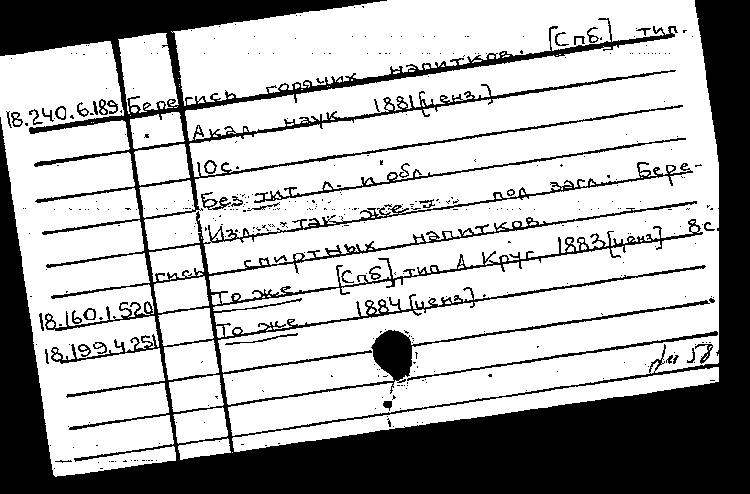 18.240.6.189 Берегись горячих напитков. [Спб.], тип.
Акад. наук, 1881 [ценз.]
10с.
Без тит. л. и обл.
Изд. так же под загл.: Бере-
гись спиртных напитков.
18.160.1.520 То же. [Спб.], тип А. Круг, 1883 [ценз.] 8с.
18.199.4.251 То же. 1884 [ценз.].
58